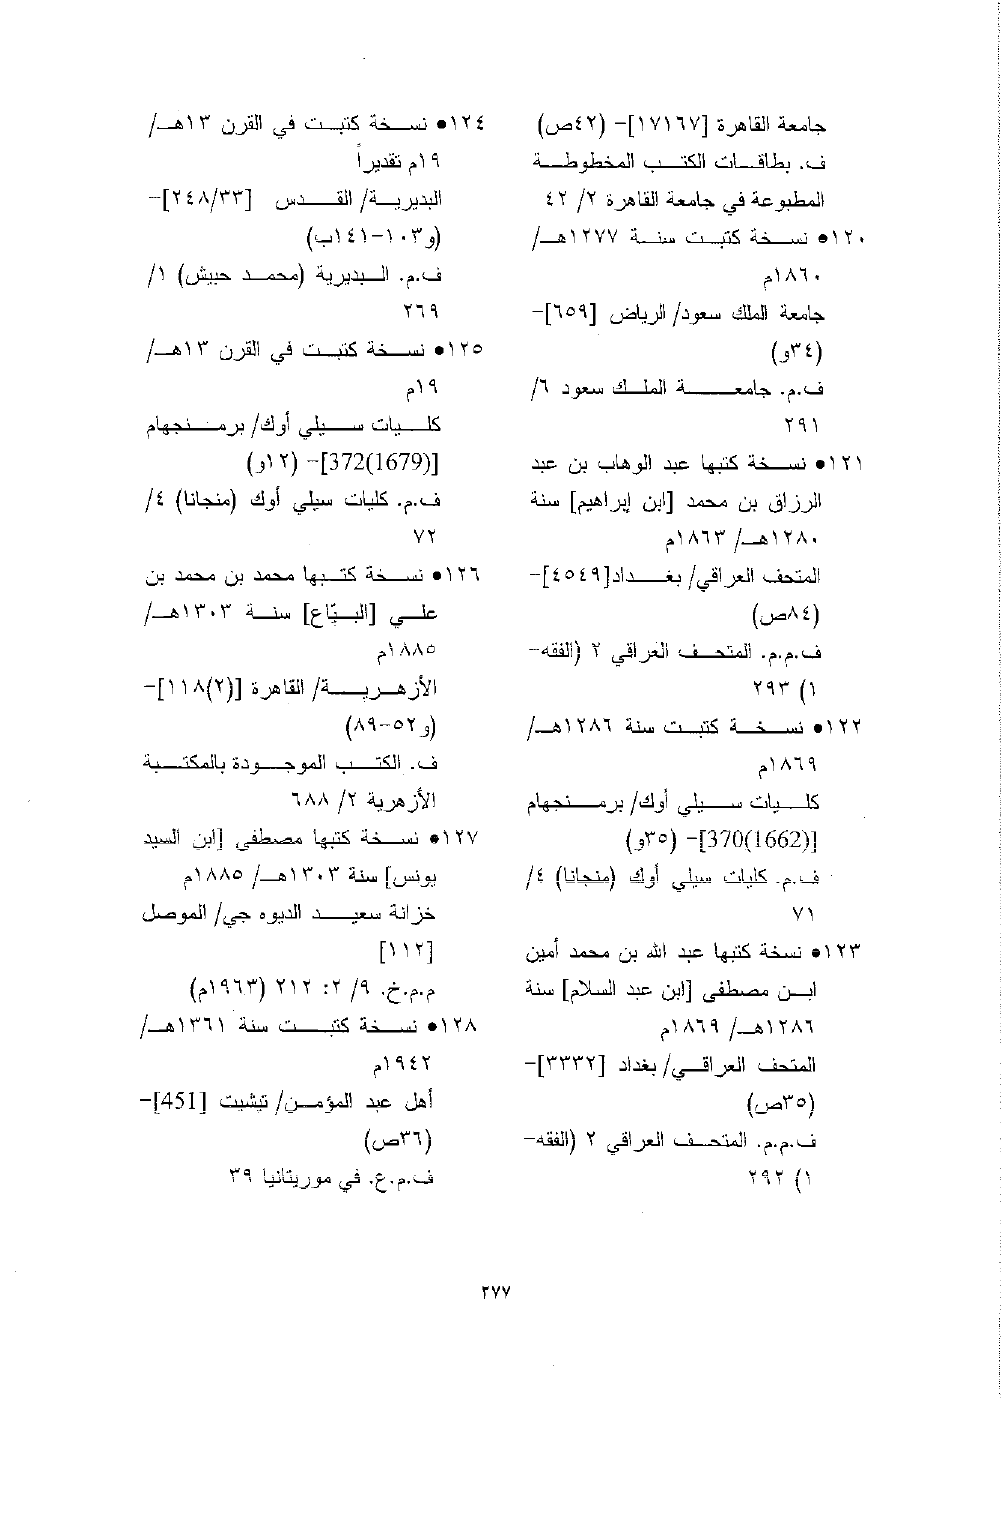 جامعة القاهرة [١٧١٦٧]- (٤٢ص)
ف. بطاقات الكتب المخطوطة
المطبوعة في جامعة القاهرة ٢/ ٤٢
١٢٠• نسخة كتبت سنة ١٢٧٧هـ/
١٨٦٠م
جامعة الملك سعود/ الرياض [٦٥٩]-
(٣٤و)
ف.م. جامعة الملك سعود ٦/
٢٩١
١٢١• نسخة كتبها عبد الوهاب بن عبد
الرزاق بن محمد [ابن إبراهيم] سنة
١٢٨٠هـ/ ١٨٦٣م
المتحف العراقي/ بغداد[٤٥٤٩]-
(٨٤ص)
ف.م.م. المتحف العراقي ٢ (الفقه-
١) ٢٩٣
١٢٢• نسخة كتبت سنة ١٢٨٦هـ/
١٨٦٩م
كليات سيلي أوك/ برمنجهام
[370(1662)]- (٣٥و)
ف.م. كليات سيلي أوك (منجانا) ٤/
٧١
١٢٣• نسخة كتبها عبد الله بن محمد أمين
ابن مصطفى [ابن عبد السلام] سنة
١٢٨٦هـ/ ١٨٦٩م
المتحف العراقي/ بغداد [٣٣٣٢]-
(٣٥ص)
ف.م.م. المتحف العراقي ٢ (الفقه-
١) ٢٩٢
١٢٤• نسخة كتبت في القرن ١٣هـ/
١٩م تقديراً
البديرية/ القدس [٢٤٨/٣٣]-
(و١٠٣-١٤١ب)
ف.م. البديرية (محمد حبيش) ١/
٢٦٩
١٢٥• نسخة كتبت في القرن ١٣هـ/
١٩م
كليات سيلي أوك/ برمنجهام
[372(1679)]- (١٢و)
ف.م. كليات سيلي أوك (منجانا) ٤/
٧٢
١٢٦• نسخة كتبها محمد بن محمد بن
علي [البيّاع] سنة ١٣٠٣هـ/
١٨٨٥م
الأزهرية/ القاهرة [(٢)١١٨]-
(و٥٢-٨٩)
ف. الكتب الموجودة بالمكتبة
الأزهرية ٢/ ٦٨٨
١٢٧• نسخة كتبها مصطفى [ابن السيد
يونس] سنة ١٣٠٣هـ/ ١٨٨٥م
خزانة سعيد الديوه جي/ الموصل
[١١٢]
م.م.خ. ٩/ ٢: ٢١٢ (١٩٦٣م)
١٢٨• نسخة كتبت سنة ١٣٦١هـ/
١٩٤٢م
أهل عبد المؤمن/ تيشيت [451]-
(٣٦ص)
ف.م.ع. في موريتانيا ٣٩
٢٧٧